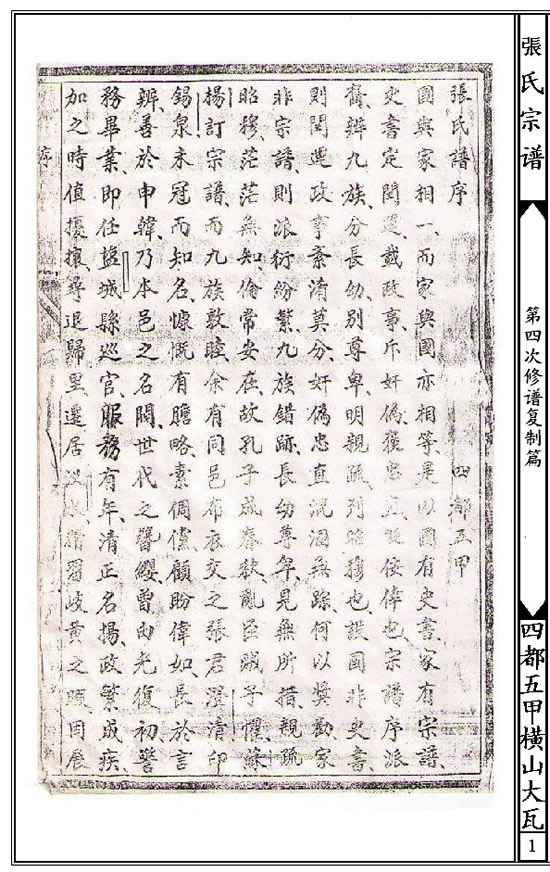 張氏譜序 四都五甲
國與家相一、而家與國亦相等、是以國有史書、家有宗譜、
史書定閏運、載政事、斥奸偽、獲忠直、佞倖也、宗譜序派
辨九族、分長幼、別尊卑、明親疏、列昭穆也、設國非史書、
則閏運政事紊清莫分、奸偽忠直混淆無踪、何以獎勸、家
非宗譜、則派衍紛繁、九族錯跡、長幼尊卑、見無所措、親疏
昭穆、茫茫無知、倫常安在、故孔子成春秋、亂臣賊子懼、蘇
揚訂宗譜、而九族敦睦、余有同邑布衣交之張君澄清印
錫泉、未冠而知名、慷慨有膽略、素倜儻、顧盼偉如、長於言
辨、善於申韓、乃本邑之名閥、世代之簪纓、曾由光復初警
務畢業、即任鹽城縣巡官、服務有年、清正名揚、政繁成疾、
加之時值擾攘、尋退歸里、遷居 岐黃之 因展
序
張氏宗谱
第四次修谱复制篇
四都五甲横山大瓦
1